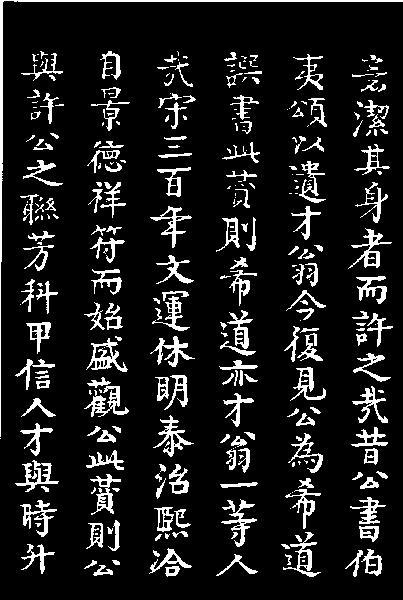 意潔其身者而許之哉昔公書伯
夷頌以遺才翁今復見公為希道
誤書此蓂則希道亦才翁一等人
哉宋三百年文運休明泰治熙洽
自景德祥符而始盛觀公此蓂則公
與許公之聯芳科甲信人才與時升